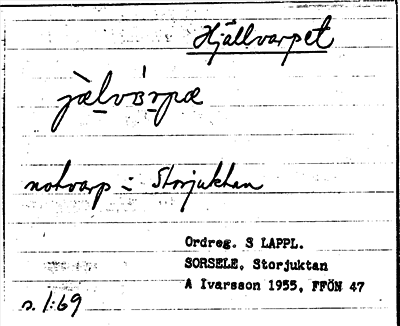 Hjällvarpet
jàlvárpæ
notvarp i Storjuktan
Ordreg. S LAPPL.
SORSELE, Storjuktan
A Ivarsson 1955, FFÖN 47
s. 1:69